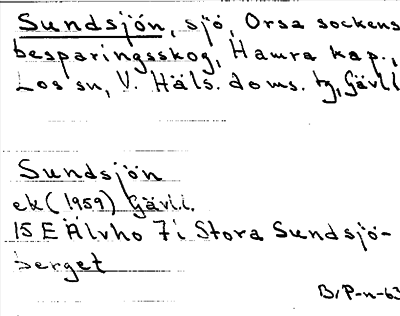 Sundsjön, sjö, Orsa sockens
besparingsskog, Hamra kap.,
Los sn, V. Häls. doms. tg, Gävl
Sundsjön
ek (1959) Gävl.l.
15 E Älvho 7i Stora Sundsjö-
berget
B/P-n-63